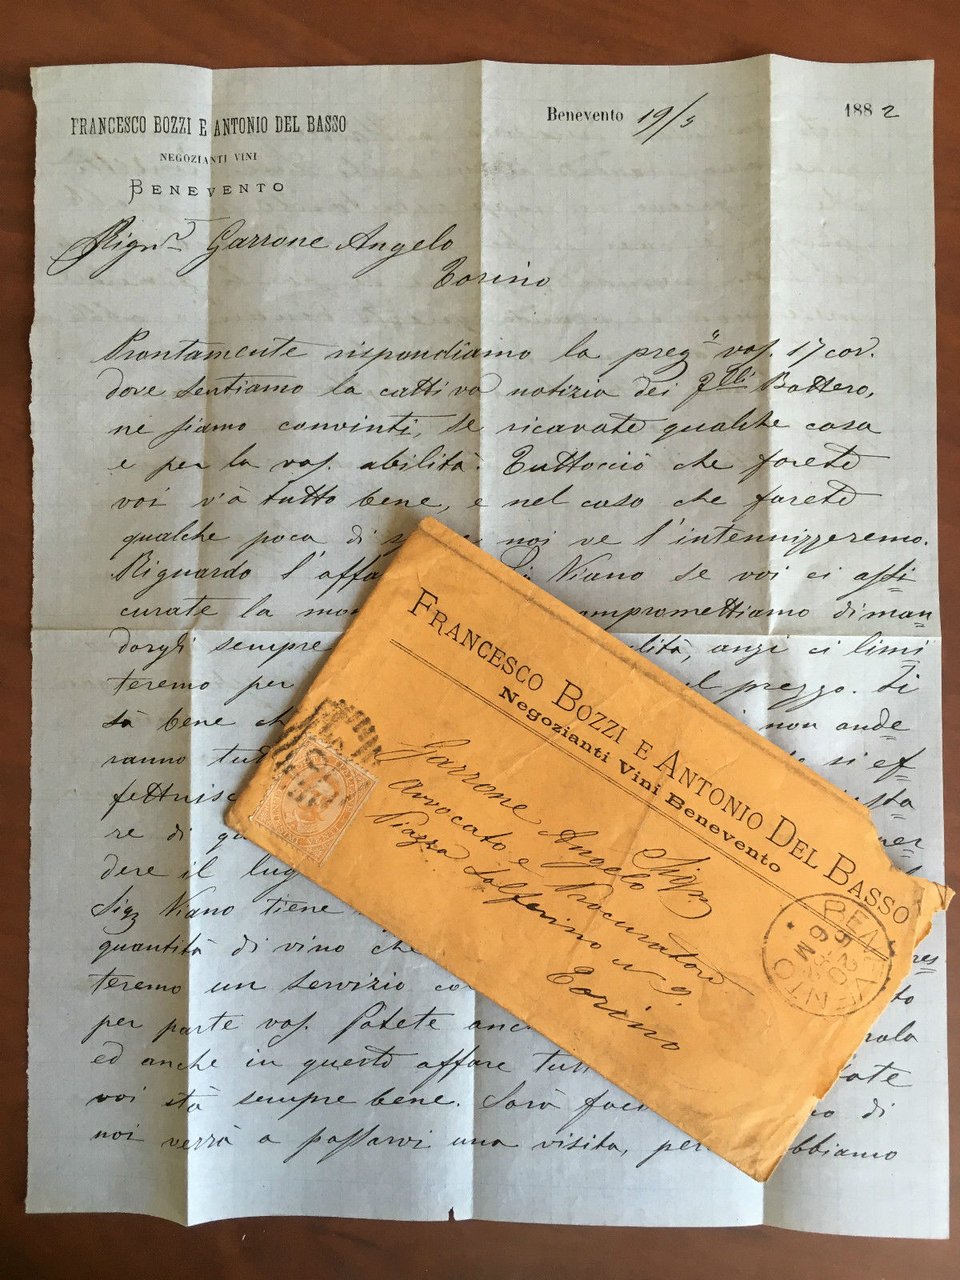 FRANCESCO BOZZI E ANTONIO DEL BASSO
NEGOZIANTI VINI
BENEVENTO
Benevento 19/5 1882
Sign.r Garrone Angelo
Torino
Prontamente rispondiamo la preg. vos. 17 cor.
dove sentiamo la cattiva notizia dei Flli Bottero,
ne siamo convinti, se ricavate qualche cosa
e per la vos. abilità. Tuttociò che farete
voi và tutto bene, e nel caso che farete
qualche poca di noi ve l'intennizzeremo.
Riguardo l'affa Viano se voi ci assi
curate la mon compromettiamo diman
dargli sempre lità, anzi ci limi
teremo per l prezzo. Si
sà bene ch non ande
ranno tut si ef
fettuisc sta
re di qu er
dere il lug
Sigr Viano tiene
quantità di vino che res
teremo un servizio co to
per parte vos. Potete anc rola
ed anche in questo affare tut fate
voi stà sempre bene. Sarà fac no di
noi verrà a passarvi una visita, per bbiamo
FRANCESCO BOZZI E ANTONIO DEL BASSO
Negozianti Vini Benevento
Sigr
Garrone Angelo
Avvocato e Procuratore
Piazza Solferino n 9.
Torino
BENEVENTO
20
6 M